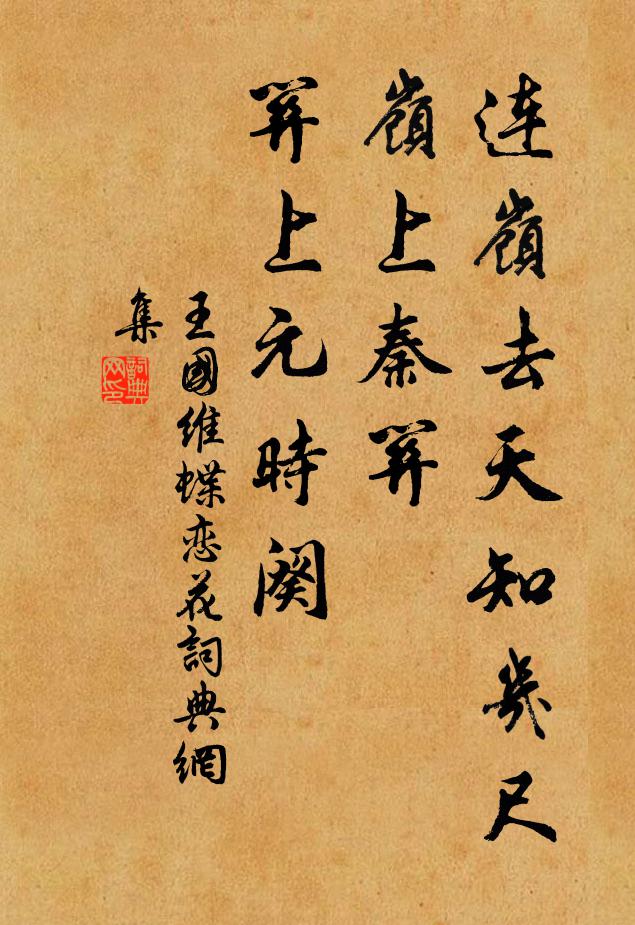 连嶺去天知幾尺
嶺上秦關
關上元時闕
王國維蝶恋花詞典網
集
詞典
网印